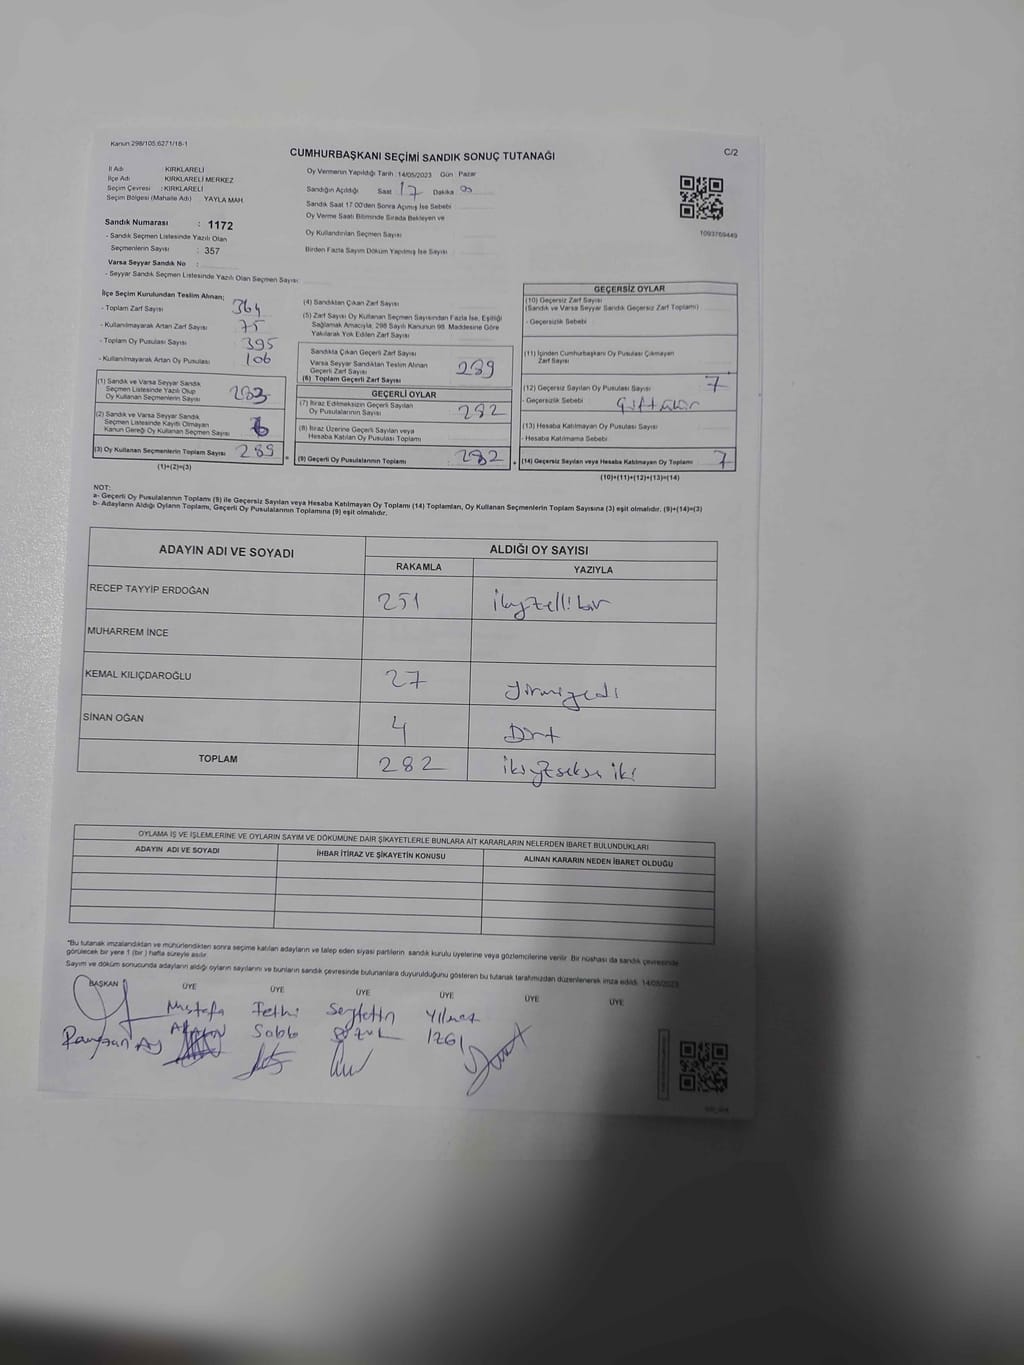 Kanun 298/105,6271/18-1
CUMHURBAŞKANI SEÇİMİ SANDIK SONUÇ TUTANAĞI
C/2
İl Adı : KIRKLARELİ
İlçe Adı : KIRKLARELİ MERKEZ
Seçim Çevresi : KIRKLARELİ
Seçim Bölgesi (Mahalle Adı) YAYLA MAH.
Sandık Numarası : 1172
- Sandık Seçmen Listesinde Yazılı Olan
Seçmenlerin Sayısı : 357
Varsa Seyyar Sandık No :
- Seyyar Sandık Seçmen Listesinde Yazılı Olan Seçmen Sayısı
Oy Vermenin Yapıldığı Tarih : 14/05/2023 Gün Pazar
Sandığın Açıldığı Saat 17 Dakika 00
Sandık Saat 17.00'den Sonra Açılmış İse Sebebi
Oy Verme Saati Bitiminde Sırada Bekleyen ve
Oy Kullandırılan Seçmen Sayısı
Birden Fazla Sayım Döküm Yapılmış İse Sayısı
1093769449
İlçe Seçim Kurulundan Teslim Alınan;
- Toplam Zarf Sayısı 364
- Kullanılmayarak Artan Zarf Sayısı 75
- Toplam Oy Pusulası Sayısı 395
- Kullanılmayarak Artan Oy Pusulası 106
(1) Sandık ve Varsa Seyyar Sandık
Seçmen Listesinde Yazılı Olup
Oy Kullanan Seçmenlerin Sayısı 283
(2) Sandık ve Varsa Seyyar Sandık
Seçmen Listesinde Kayıtlı Olmayan
Kanun Gereği Oy Kullanan Seçmen Sayısı 6
(3) Oy Kullanan Seçmenlerin Toplam Sayısı 289
(1)+(2)=(3)
(4) Sandıktan Çıkan Zarf Sayısı
(5) Zarf Sayısı Oy Kullanan Seçmen Sayısından Fazla İse, Eşitliği
Sağlamak Amacıyla, 298 Sayılı Kanunun 98. Maddesine Göre
Yakılarak Yok Edilen Zarf Sayısı
Sandıkta Çıkan Geçerli Zarf Sayısı
Varsa Seyyar Sandıktan Teslim Alınan
Geçerli Zarf Sayısı
(6) Toplam Geçerli Zarf Sayısı 289
GEÇERLİ OYLAR
(7) İtiraz Edilmeksizin Geçerli Sayılan
Oy Pusulalarının Sayısı 282
(8) İtiraz Üzerine Geçerli Sayılan veya
Hesaba Katılan Oy Pusulası Toplamı
(9) Geçerli Oy Pusulalarının Toplamı 282
GEÇERSİZ OYLAR
(10) Geçersiz Zarf Sayısı
(Sandık ve Varsa Seyyar Sandık Geçersiz Zarf Toplamı)
- Geçersizlik Sebebi
(11) İçinden Cumhurbaşkanı Oy Pusulası Çıkmayan
Zarf Sayısı
(12) Geçersiz Sayılan Oy Pusulası Sayısı 7
- Geçersizlik Sebebi
(13) Hesaba Katılmayan Oy Pusulası Sayısı
- Hesaba Katılmama Sebebi
(14) Geçersiz Sayılan veya Hesaba Katılmayan Oy Toplamı 7
(10)+(11)+(12)+(13)=(14)
NOT:
a- Geçerli Oy Pusulalarının Toplamı (9) ile Geçersiz Sayılan veya Hesaba Katılmayan Oy Toplamı (14) Toplamları, Oy Kullanan Seçmenlerin Toplam Sayısına (3) eşit olmalıdır. (9)+(14)=(3)
b- Adayların Aldığı Oyların Toplamı, Geçerli Oy Pusulalarının Toplamına (9) eşit olmalıdır.
ADAYIN ADI VE SOYADI ALDIĞI OY SAYISI
RAKAMLA YAZIYLA
RECEP TAYYİP ERDOĞAN 251 ikiyüzellibir
MUHARREM İNCE
KEMAL KILIÇDAROĞLU 27 yirmiyedi
SİNAN OĞAN 4 Dört
TOPLAM 282 ikiyüzseksen iki
OYLAMA İŞ VE İŞLEMLERİNE VE OYLARIN SAYIM VE DÖKÜMÜNE DAİR ŞİKAYETLERLE BUNLARA AİT KARARLARIN NELERDEN İBARET BULUNDUKLARI
ADAYIN ADI VE SOYADI İHBAR İTİRAZ VE ŞİKAYETİN KONUSU ALINAN KARARIN NEDEN İBARET OLDUĞU
"Bu tutanak imzalandıktan ve mühürlendikten sonra seçime katılan adayların ve talep eden siyasi partilerin, sandık kurulu üyelerine veya gözlemcilerine verilir. Bir nüshası da sandık çevresinde
görülecek bir yere 1 (bir) hafta süreyle asılır.
Sayım ve döküm sonucunda adayların aldığı oyların sayılarını ve bunların sandık çevresinde bulunanlara duyurulduğunu gösteren bu tutanak tarafımızdan düzenlenerek imza edildi. 14/05/2023
BAŞKAN ÜYE ÜYE ÜYE ÜYE ÜYE ÜYE
Mustafa Fethi Seyfettin Yılmaz
Ramazan Ay